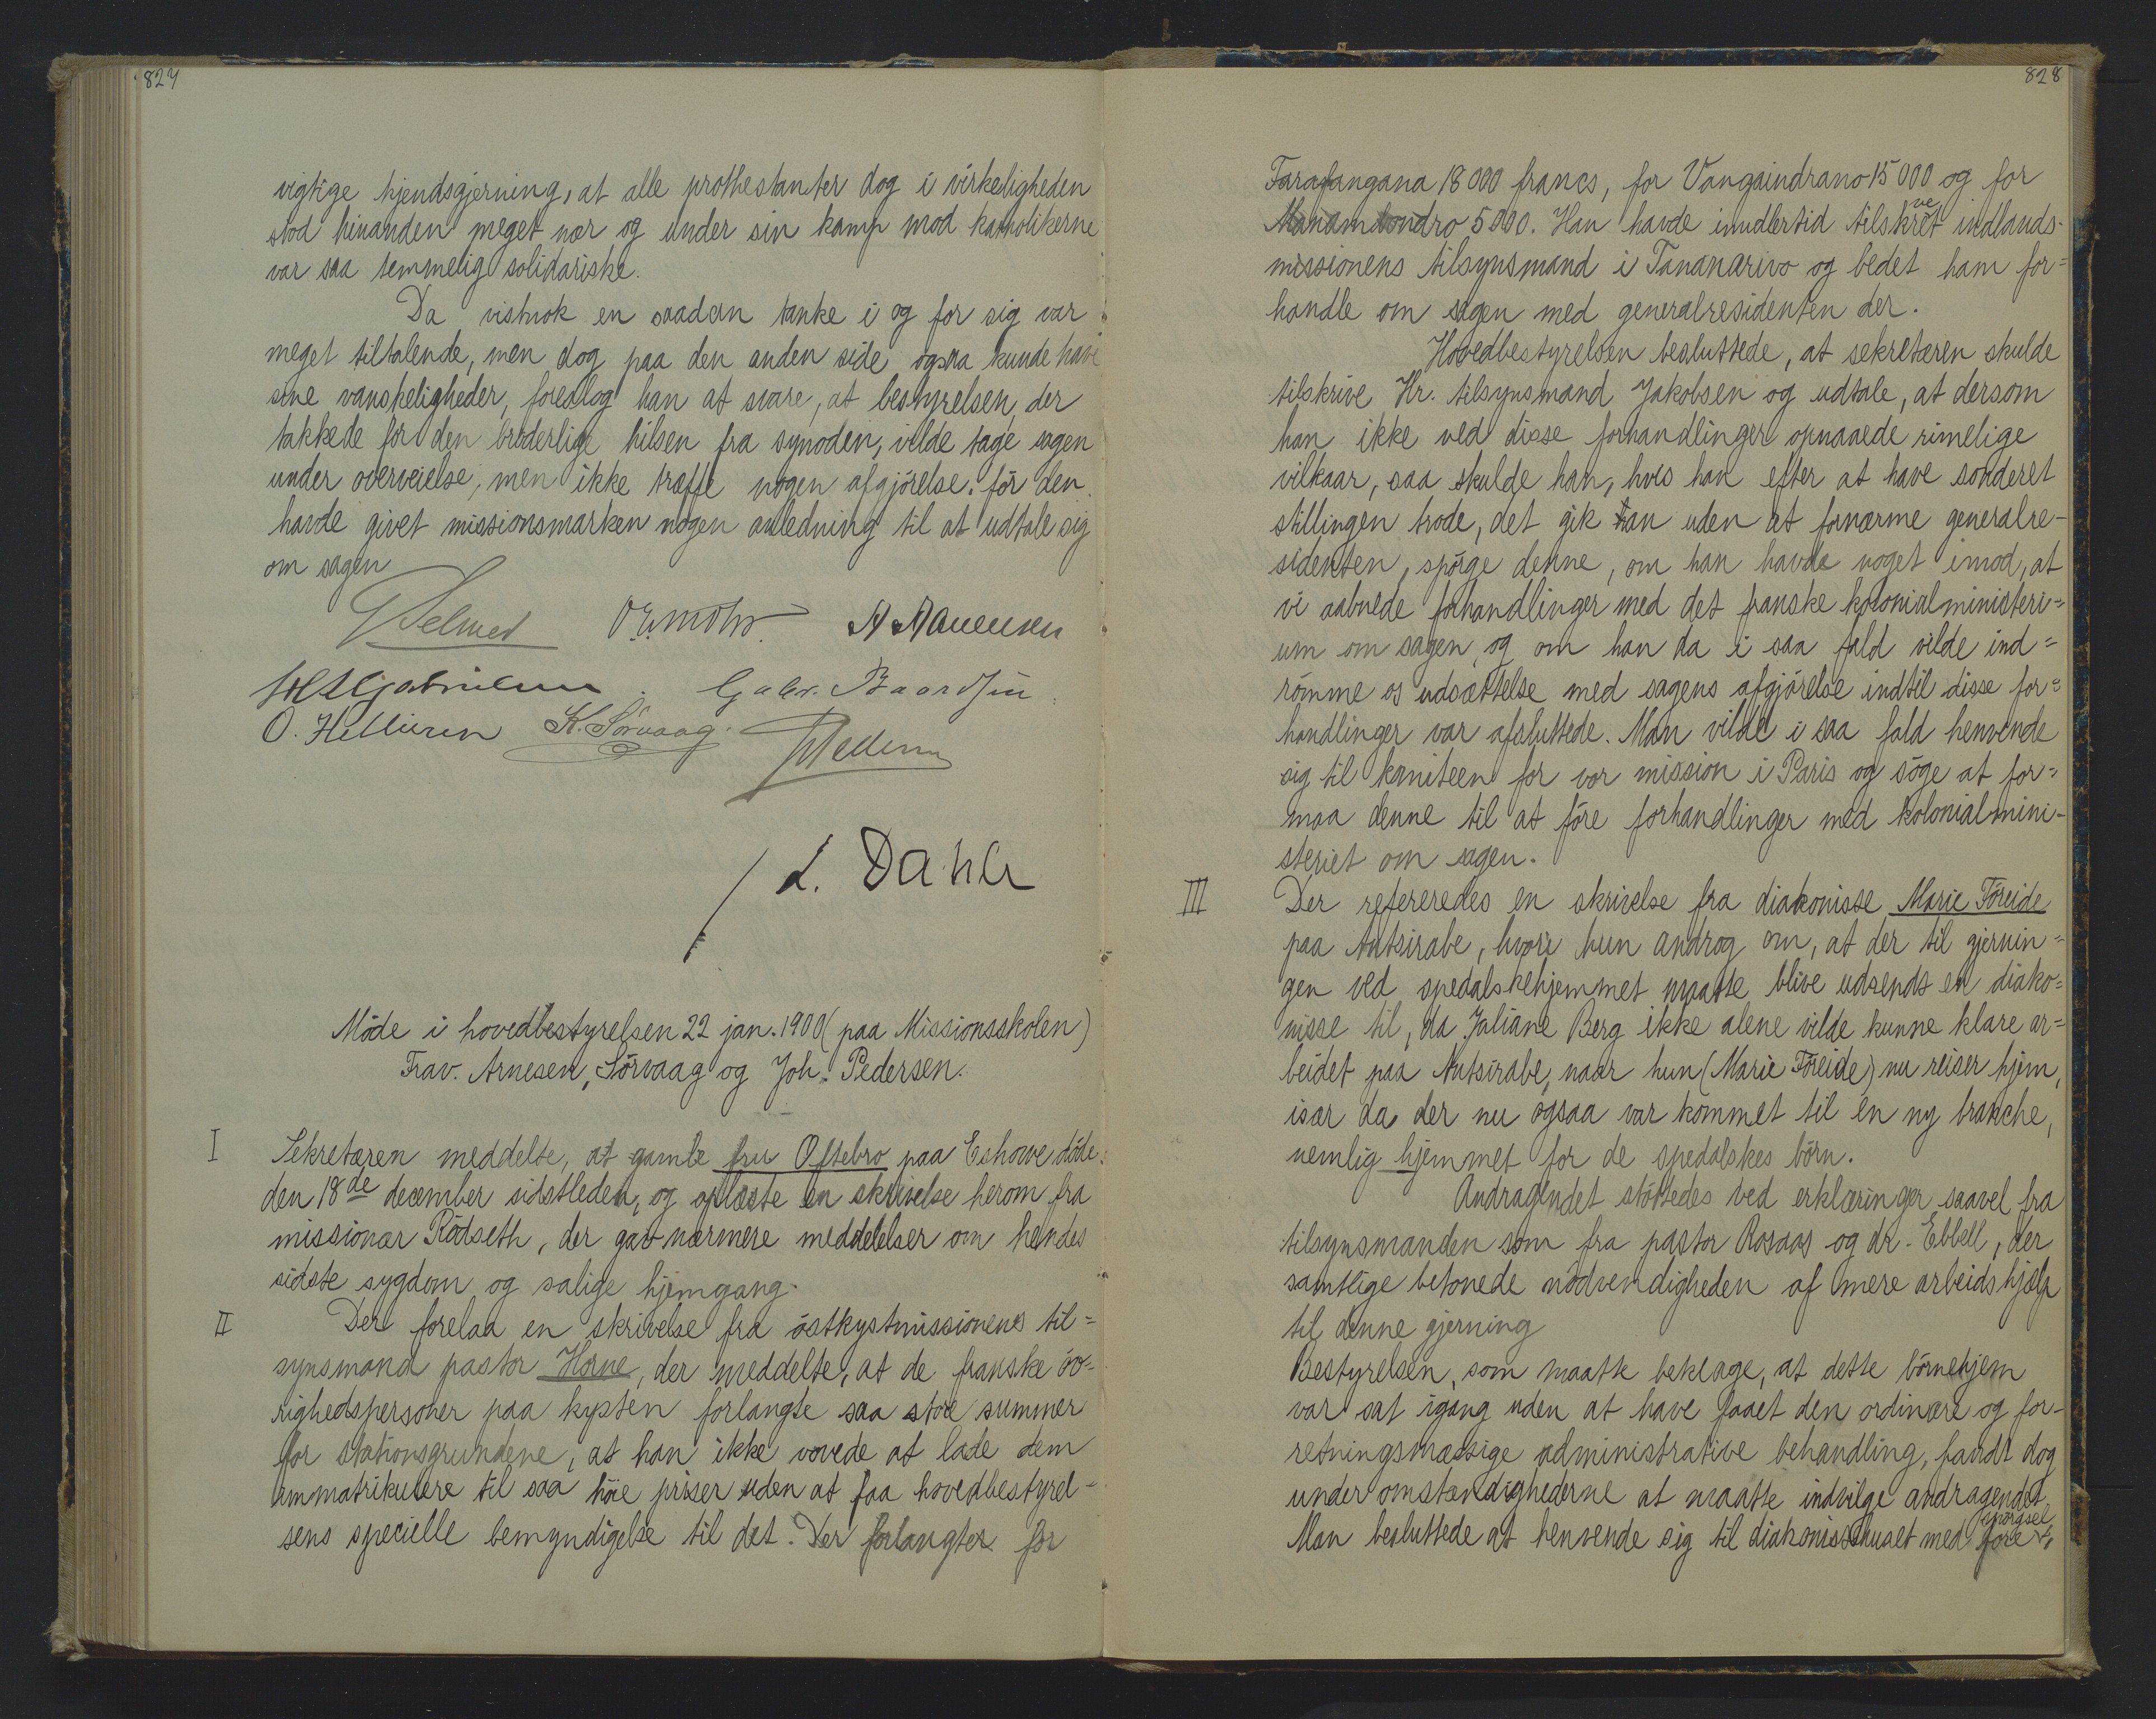 827
vigtige kjendsgjerning, at alle prothestanter dog i virkeligheden
stod hinanden meget nær og under sin kamp mod katholikerne
var saa temmelig solidariske.
Da vistnok en saadan tanke i og for sig var
meget tiltalende, men dog paa den anden side ogsaa kunde have
sine vanskeligheder, foreslog han at svare, at bestyrelsen, der
takkede for den broderlige hilsen fra synoden, vilde tage sagen
under overveielse, men ikke træffe nogen afgjörelse, för den
havde givet missionsmarken nogen anledning til at udtale sig
om sagen
O. E. Mohr.
Gabr. Baardsen
K. Sörvaag.
L. Dahle
Möde i hovedbestyrelsen 22 jan. 1900 (paa Missionsskolen)
Frav. Arnesen, Sörvaag og Joh. Pedersen.
I Sekretæren meddelte, at gamle fru Oftebro paa Eshowe döde
den 18de december sidstleden, og oplæste en skrivelse herom fra
missionær Rödseth, der gav nærmere meddelelser om hendes
sidste sygdom og salige hjemgang.
II Der forelaa en skrivelse fra östkystmissionens til=
synsmand pastor Horne, der meddelte, at de franske öv=
righedspersoner paa kysten forlangte saa store summer
for stationsgrundene, at han ikke vovede at lade dem
immatrikulere til saa höie priser uden at faa hovedbestyrel-
sens specielle bemyndigelse til det. Der forlangtes for
828
Farafangana 18000 francs, for Vangaindrano 15000 og for
Manambondro 5000. Han havde imidlertid tilskrevet indlands-
missionens tilsynsmand i Tananarivo og bedet ham for=
handle om sagen med generalresidenten der.
Hovedbestyrelsen besluttede, at sekretæren skulde
tilskrive Hr. tilsynsmand Jakobsen og udtale, at dersom
han ikke ved disse forhandlinger opnaaede rimelige
vilkaar, saa skulde han, hvis han efter at have sonderet
stillingen trode, det gik an uden at fornærme generalre-
sidenten, spörge denne, om han havde noget imod, at
vi aabnede forhandlinger med det franske kolonialministeri=
um om sagen, og om han da i saa fald vilde ind=
römme os udsættelse med sagens afgjörelse indtil disse for=
handlinger var afsluttede. Man vilde i saa fald henvende
sig til komiteen for vor mission i Paris og söge at for=
maa denne til at före forhandlinger med kolonialmini-
steriet om sagen.
III Der refereredes en skrivelse fra diakonisse Marie Föreide
paa Antsirabe, hvori hun androg om, at der til gjernin=
gen ved spedalskehjemmet maatte blive udsendt en diako=
nisse til, da Juliane Berg ikke alene vilde kunne klare ar=
beidet paa Antsirabe, naar hun (Marie Föreide) nu reiser hjem,
især da der nu ogsaa var kommet til en ny branche,
nemlig hjemmet for de spedalskes börn.
Andragendet stöttedes ved erklæringer saavel fra
tilsynsmanden som fra pastor Rosaas og dr. Ebbell, der
samtlige betonede nödvendigheden af mere arbeidshjælp
til denne gjerning
Bestyrelsen, som maatte beklage, at dette börnehjem
var sat igang uden at have faaet den ordinære og for-
retningsmæssige administrative behandling, fandt dog
under omstændighederne at maatte indvilge andragendet.
Man besluttede at henvende sig til diakonissehuset med fore
spörgsel